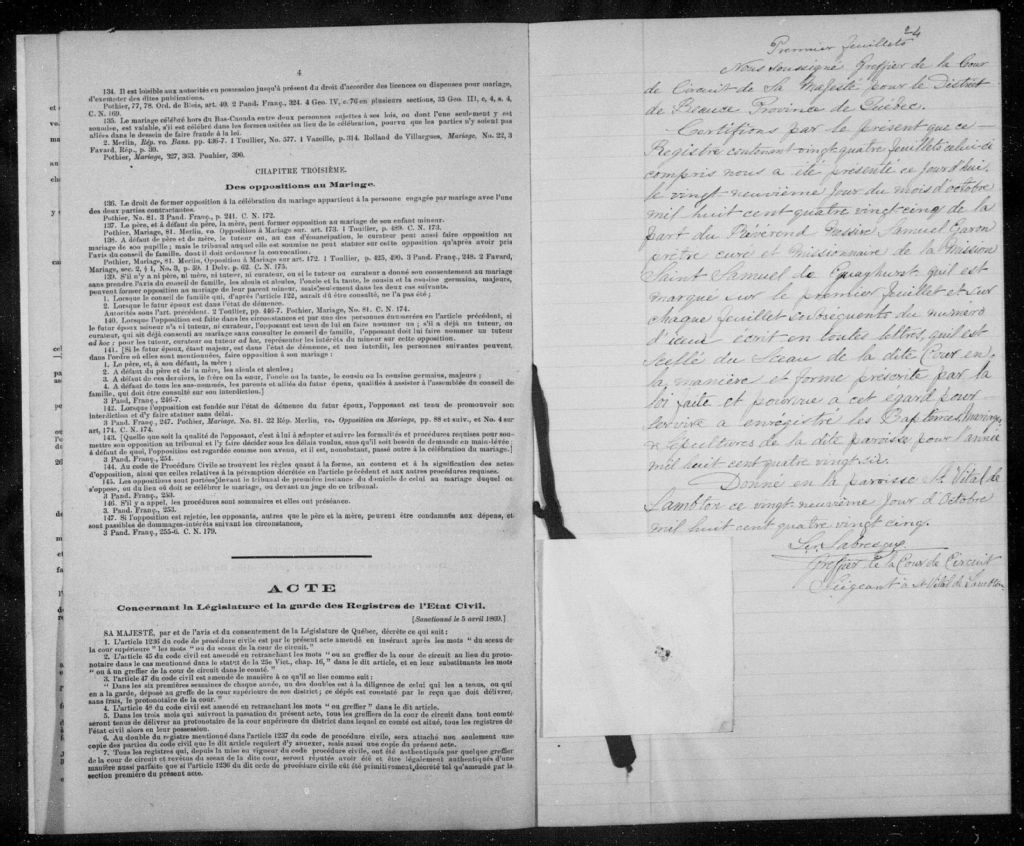 4
134. Il est loisible aux autorités en possession jusqu'à présent du droit d'accorder des licences ou dispenses pour mariage,
d'exempter des dites publications.
Pothier, 77, 78. Ord. de Blois, art. 40. 2 Pand. Franç., 324. 4 Geo. IV, c. 76 en plusieurs sections, 35 Geo. III, c, 4, s. 4,
C. N. 169.
135. Le mariage célébré hors du Bas-Canada entre deux personnes sujettes à ses lois, ou dont l'une seulement y est
soumise, est valable, s'il est célébré dans les formes usitées au lieu de la célébration, pourvu que les parties n'y soient pas
allées dans le dessein de faire fraude à la loi.
2. Merlin, Rép. vo. Bans. pp. 436-7. 1 Toullier, No. 577. 1 Vazeille, p. 314. Rolland de Villargues, Mariage, No. 22, 3
Favard, Rép., p. 39.
Pothier, Mariage, 327, 363. Pouhier, 390.
CHAPITRE TROISIÈME.
Des oppositions au Mariage.
136. Le droit de former opposition à la célébration du mariage appartient à la personne engagée par mariage avec l'une
des deux parties contractantes.
Pothier, No. 81. 3 Pand. Franç., p. 241. C. N. 172.
137. Le père, et à défaut du père, la mère, peut former opposition au mariage de son enfant mineur.
Pothier, Mariage, 81. Merlin, vo. Opposition à Mariage sur. art. 173. 1 Toullier, p. 489. C. N. 173.
138. A défaut de père et de mère, le tuteur ou, au cas d'émancipation, le curateur peut aussi faire opposition au
mariage de son pupille; mais le tribunal auquel elle est soumise ne peut statuer sur cette opposition qu'après avoir pris
l'avis du conseil de famille, dont il doit ordonner la convocation.
Pothier, Mariage, 81. Merlin, Opposition à Mariage sur art. 172. 1 Toullier, p. 425, 490. 3 Pand. Franç., 248. 2 Favard,
Mariage, sec. 2, § 1, No. 3, p. 59. 1 Delv. p. 62. C. N. 175.
139. S'il n'y a ni père, ni mère, ni tuteur, ni curateur, ou si le tuteur ou curateur a donné son consentement au mariage
sans prendre l'avis du conseil de famille, les aïeuls et aïeules, l'oncle et la tante, le cousin et la cousine germains, majeurs,
peuvent former opposition au mariage de leur parent mineur, mais seulement dans les deux cas suivants.
1. Lorsque le conseil de famille qui, d'après l'article 122, aurait dû être consulté, ne l'a pas été;
2. Lorsque le futur époux est dans l'état de démence.
Autorités sous l'art. précédent. 2 Toullier, pp. 446-7. Pothier, Mariage, No. 81. C. N. 174.
140. Lorsque l'opposition est faite dans les circonstances et par une des personnes énumérées en l'article précédent, si
le futur époux mineur n'a ni tuteur, ni curateur, l'opposant est tenu de lui en faire nommer un; s'il a déjà un tuteur, ou
curateur, qui ait déjà consenti au mariage sans consulter le conseil de famille, l'opposant doit lui faire nommer un tuteur
ad hoc; pour les tuteur, curateur ou tuteur ad hoc, représenter les intérêts du mineur sur cette opposition.
141. [Si le futur époux, étant majeur, est dans l'état de démence, et non interdit, les personnes suivantes peuvent,
dans l'ordre où elles sont mentionnées, faire opposition à son mariage:
1. Le père, et, à son défaut, la mère;
2. A défaut du père et de la mère, les aïeuls et aïeules;
3. A défaut de ces derniers, le frère ou la sœur, l'oncle ou la tante, le cousin ou la cousine germains, majeurs;
4. A défaut de tous les sus-nommés, les parents et alliés du futur époux, qualifiés à assister à l'assemblée du conseil de
famille, qui doit être consulté sur son interdiction.]
3 Pand. Franç., 246-7.
142. Lorsque l'opposition est fondée sur l'état de démence du futur époux, l'opposant est tenu de promouvoir son
interdiction et d'y faire statuer sans délai.
3 Pand. Franç., 247. Pothier, Mariage, No. 81. 22 Rép. Merlin, vo. Opposition au Mariage, pp. 88 et suiv., et No. 4 sur
art, 174. C. N. 174.
143. [Quelle que soit la qualité de l'opposant, c'est à lui à adopter et suivre les formalités et procédures requises pour sou-
mettre son opposition au tribunal et l'y faire décider sous les délais voulus, sans qu'il soit besoin de demande en main-levée;
à défaut de quoi, l'opposition est regardée comme non avenu, et il est, nonobstant, passé outre à la célébration du mariage.]
3 Pand. Franç., 254.
144. Au code de Procédure Civile se trouvent les règles quant à la forme, au contenu et à la signification des actes
d'opposition, ainsi que celles relatives à la péremption décrétée en l'article précédent et aux autres procédures requises.
145. Les oppositions sont portées devant le tribunal de première instance du domicile de celui au mariage duquel on
s'oppose, ou du lieu où doit se célébrer le mariage, ou devant un juge de ce tribunal.
3 Pand. Franç., 253.
146. S'il y a appel, les procédures sont sommaires et elles ont préséance.
3. Pand. Franç., 253.
147. Si l'opposition est rejetée, les opposants, autres que le père et la mère, peuvent être condamnés aux dépens, et
sont passibles de dommages-intérêts suivant les circonstances,
3 Pand. Franç., 255-6. C. N. 179.
ACTE
Concernant la Législature et la garde des Registres de l'Etat Civil.
[Sanctionné le 5 avril 1869.]
SA MAJESTÉ, par et de l'avis et du consentement de la Législature de Québec, décrète ce qui suit:
1. L'article 1236 du code de procédure civile est par le présent acte amendé en insérant après les mots "du sceau de
la cour supérieure" les mots "ou du sceau de la cour de circuit."
2. L'article 45 du code civil est amendé en retranchant les mots "ou au greffier de la cour de circuit au lieu du proto-
notaire dans le cas mentionné dans le statut de la 25e Vict., chap. 16," dans le dit article, et en leur substituants les mots
"ou à un greffier de la cour de circuit dans le comté."
3. l'article 47 du code civil est amendé de manière à ce qu'il se lise comme suit:
"Dans les six premières semaines de chaque année, un des doubles est à la diligence de celui qui les a tenus, ou qui
en a la garde, déposé au greffe de la cour supérieure de son district; ce dépôt est constaté par le reçu que doit délivrer,
sans frais, le protonotaire de la cour."
4. L'article 48 du code civil est amendé en retranchant les mots "ou greffier" dans le dit article.
5. Dans les trois mois qui suivront la passation du présent acte, tous les greffiers de la cour de circuit dans tout comté
seront tenus de délivrer au protonotaire de la cour supérieure du district dans lequel ce comté est situé, tous les registres de
l'état civil alors en leur possession.
6. Au double du registre mentionné dans l'article 1237 du code de procédure civile, sera attaché non seulement une
copie des parties du code civil que le dit article requiert d'y annexer, mais aussi une copie du présent acte.
7. Tous les registres qui, depuis la mise en vigueur du code procédure civile, ont été authentiqués par quelque greffier
de la cour de circuit et revêtus du sceau de la dite cour, seront réputés avoir été et être légalement authentiqués d'une
manière aussi parfaite que si l'article 1236 du dit code de procédure civile eût été primitivement décrété tel qu'amendé par la
section première du présent acte.
24
Premier feuillets
Nous soussigné Greffier de la Cour
de Circuit de Sa Majesté pour le District
de Beauce Province de Québec.
Certifions par le présent que ce
Registre contenant vingt quatre feuillets celui-ci
compris nous a été présenté ce jour d'hui
le vingt neuvième jour du mois d'octobre
mil huit cent quatre vingt cinq de la
part du Révérend Messire Samuel Garon
pretre curé et missionnaire de la mission
Saint Samuel de Gayhurst quil est
marqué sur le premier feuillet et sur
chaque feuillet subsequents du numéro
d'iceux écrit en toutes lettres, quil est
scellé du sceau de la dite Cour en
la manière et forme préscrite par la
loi faite et pourvue a cet egard pour
servir a enrégistré les Baptêmes, Mariages
& Sépultures de la dite paroisse pour l'année
mil huit cent quatre vingt six.
Donné en la paroisse St. Vital de
Lambton ce vingt neuvième jour d'Octobre
mil huit cent quatre vingt cinq.
Greffier de la Cour de Circuit
Siégeant à St Vital de Lambton